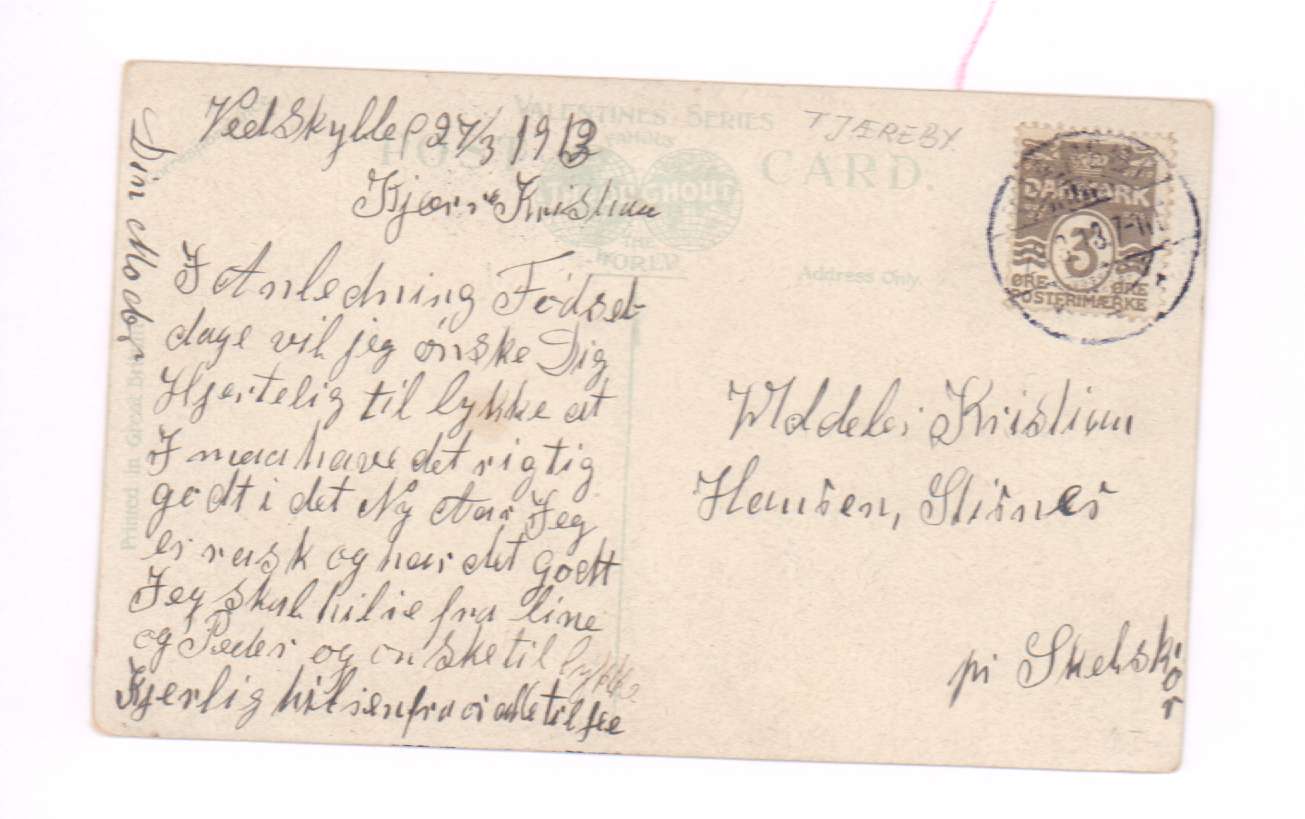 VALENTINES SERIES
FAMOUS
THROUGHOUT
THE
WORLD
POST CARD.
TJÆREBY.
Address Only.
Printed in Great Britain
DANMARK
3
ØRE ØRE
POSTFRIMÆRKE
Vedskylle 27/3 1913
Kjære Kristian
I Anledning Födsel
dage vil jeg ønske Dig
Hjertelig til lykke at
I maa have det rigtig
godt i det Ny Aar Jeg
er rask og har det godt
Jeg skal hilse fra Line
og Peder og ønske til lykke
Kjerlig hilsen fra
Din Moder
Kristian
Hansen, Stisnes
pr Skelskør